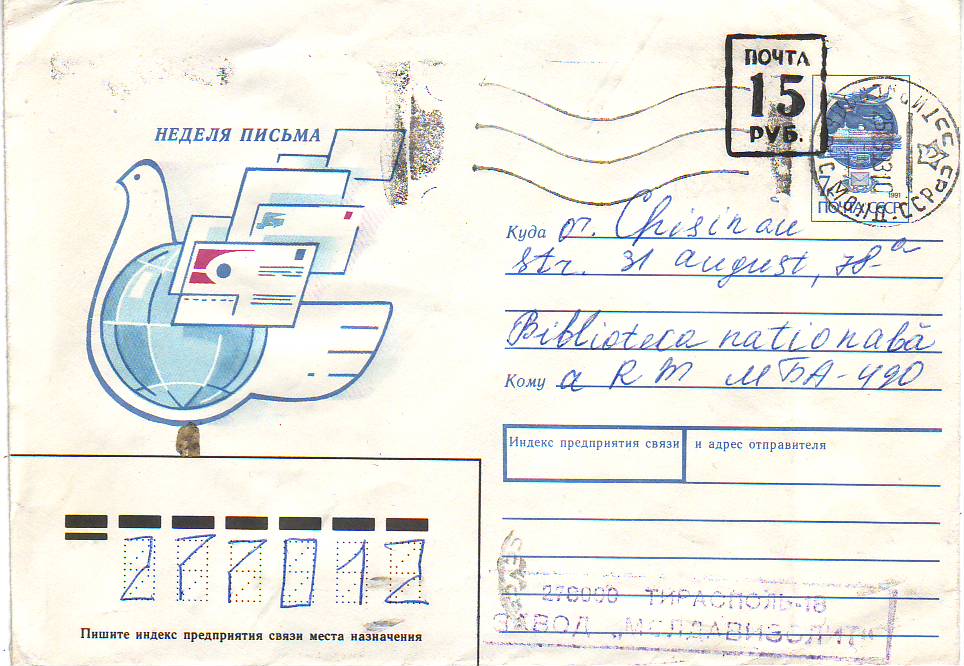 НЕДЕЛЯ ПИСЬМА
ПОЧТА
15
РУБ.
1991
ПОЧТА СССР
Куда or. Chişinău
str. 31 august, 78-a
Biblioteca naţională
Кому a RM МБА-490
Индекс предприятия связи и адрес отправителя
277012
Пишите индекс предприятия связи места назначения
ТИРАСПОЛЬ-18
ЗАВОД „МОЛДАВИЗОЛИТ“